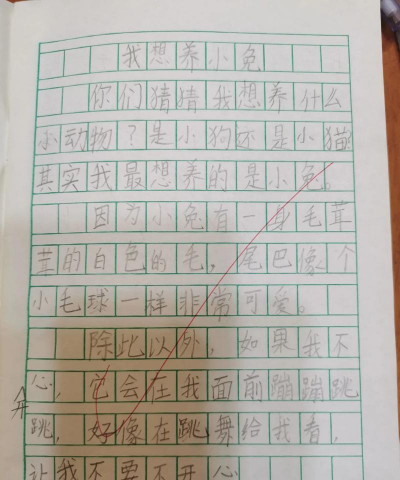 我想养小兔
你们猜猜我想养什么
小动物？是小狗还是小猫
其实我最想养的是小兔。
因为小兔有一身毛茸
茸的白色的毛，尾巴像个
小毛球一样非常可爱。
除此以外，如果我不
开心，它会在我面前蹦蹦跳
跳，好像在跳舞给我看，
让我不要不开心